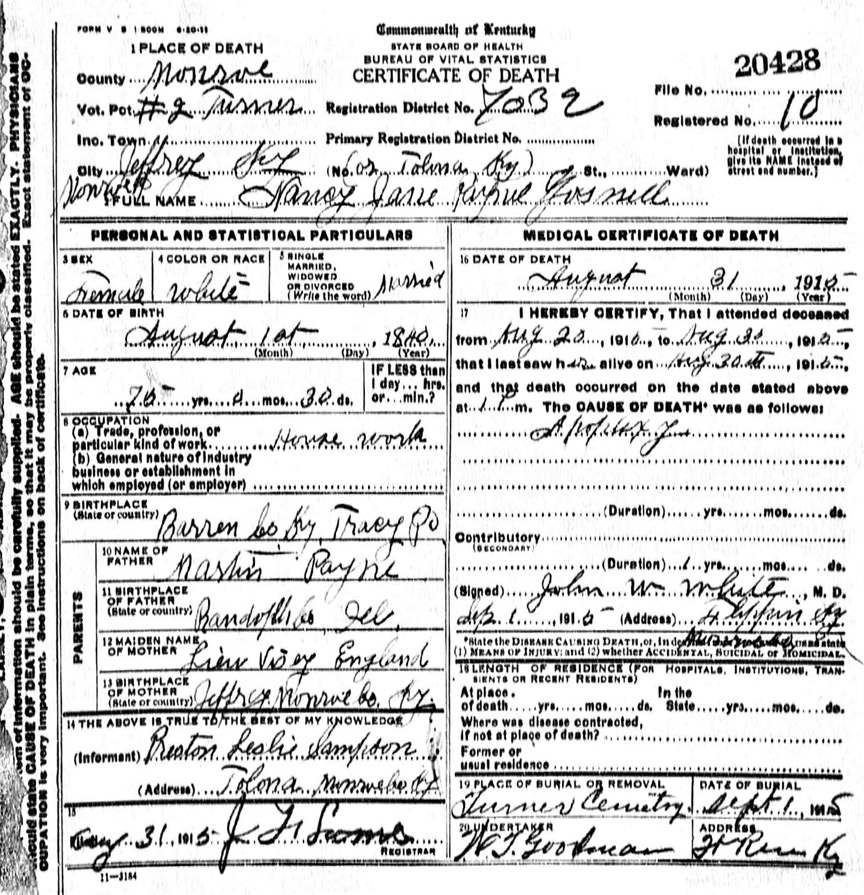 FORM V S 1 500M 6-20-11
Commonwealth of Kentucky
STATE BOARD OF HEALTH
BUREAU OF VITAL STATISTICS
CERTIFICATE OF DEATH
20428
1 PLACE OF DEATH
County Monroe
Vot. Pct #2 Turner Registration District No. 7032
File No.
Registered No. 10
Inc. Town Primary Registration District No.
(If death occurred in a hospital or institution, give its NAME instead of street and number.)
City Jeffrey Ky (No. or Tolona Ky) St., Ward)
2 FULL NAME Nancy Jane Payne Gosnell
PERSONAL AND STATISTICAL PARTICULARS
3 SEX Female
4 COLOR OR RACE White
5 SINGLE MARRIED, WIDOWED OR DIVORCED (Write the word) Married
6 DATE OF BIRTH
August 1st, 1840
(Month) (Day) (Year)
7 AGE
75 yrs. 0 mos. 30 ds.
IF LESS than 1 day... hrs. or... min.?
8 OCCUPATION
(a) Trade, profession, or particular kind of work House work
(b) General nature of industry business or establishment in which employed (or employer)
9 BIRTHPLACE (State or country) Barren Co Ky, Tracy Po
PARENTS
10 NAME OF FATHER Martin Payne
11 BIRTHPLACE OF FATHER (State or country) Randolph Co
12 MAIDEN NAME OF MOTHER England
13 BIRTHPLACE OF MOTHER (State or country) Jeffrey Monroe Co. Ky.
14 THE ABOVE IS TRUE TO THE BEST OF MY KNOWLEDGE
(Informant) Preston Leslie Sampson
(Address) Tolona Monroe Co Ky
15
31, 1915 REGISTRAR
11-3184
MEDICAL CERTIFICATE OF DEATH
16 DATE OF DEATH
August 31, 1915
(Month) (Day) (Year)
17 I HEREBY CERTIFY, That I attended deceased
from Aug 20, 1915, to Aug 30, 1915,
that I last saw her alive on Aug 30th, 1915,
and that death occurred on the date stated above
at m. The CAUSE OF DEATH* was as follows:
Apoplexy
(Duration) yrs. mos. ds.
Contributory
(SECONDARY)
(Duration) yrs. mos. ds.
(Signed) John W. White, M. D.
Sep. 1, 1915 (Address) Flippin Ky
*State the DISEASE CAUSING DEATH, or, in
(1) MEANS OF INJURY; and (2) whether ACCIDENTAL, SUICIDAL or HOMICIDAL.
18 LENGTH OF RESIDENCE (FOR HOSPITALS, INSTITUTIONS, TRANSIENTS OR RECENT RESIDENTS)
At place of death yrs. mos. ds. In the State yrs. mos. ds.
Where was disease contracted, if not at place of death?
Former or usual residence
19 PLACE OF BURIAL OR REMOVAL Turner Cemetry
DATE OF BURIAL Sept 1, 1915
20 UNDERTAKER W T Goodman
ADDRESS Ky